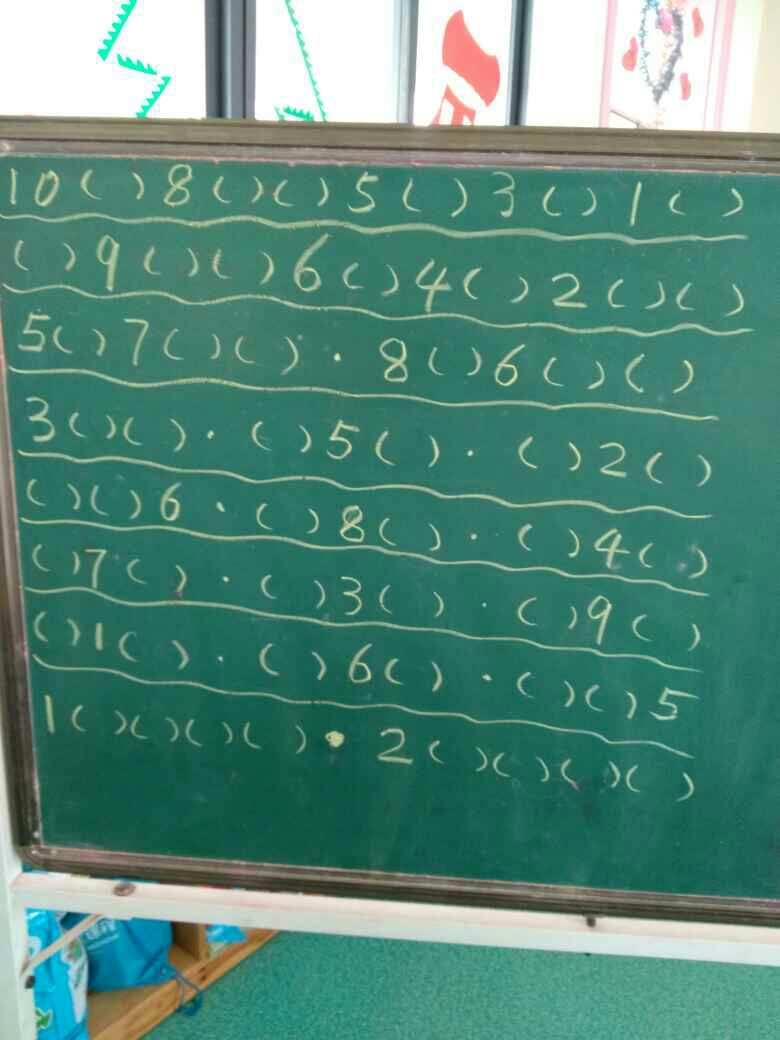 10()8()()5()3()1()
()9()()6()4()2()()
5()7()()·8()6()()
3()()·()5()·()2()
()()6·()8()·()4()
()7()·()3()·()9()
()1()·()6()·()()5
1()()()()·2()()()()